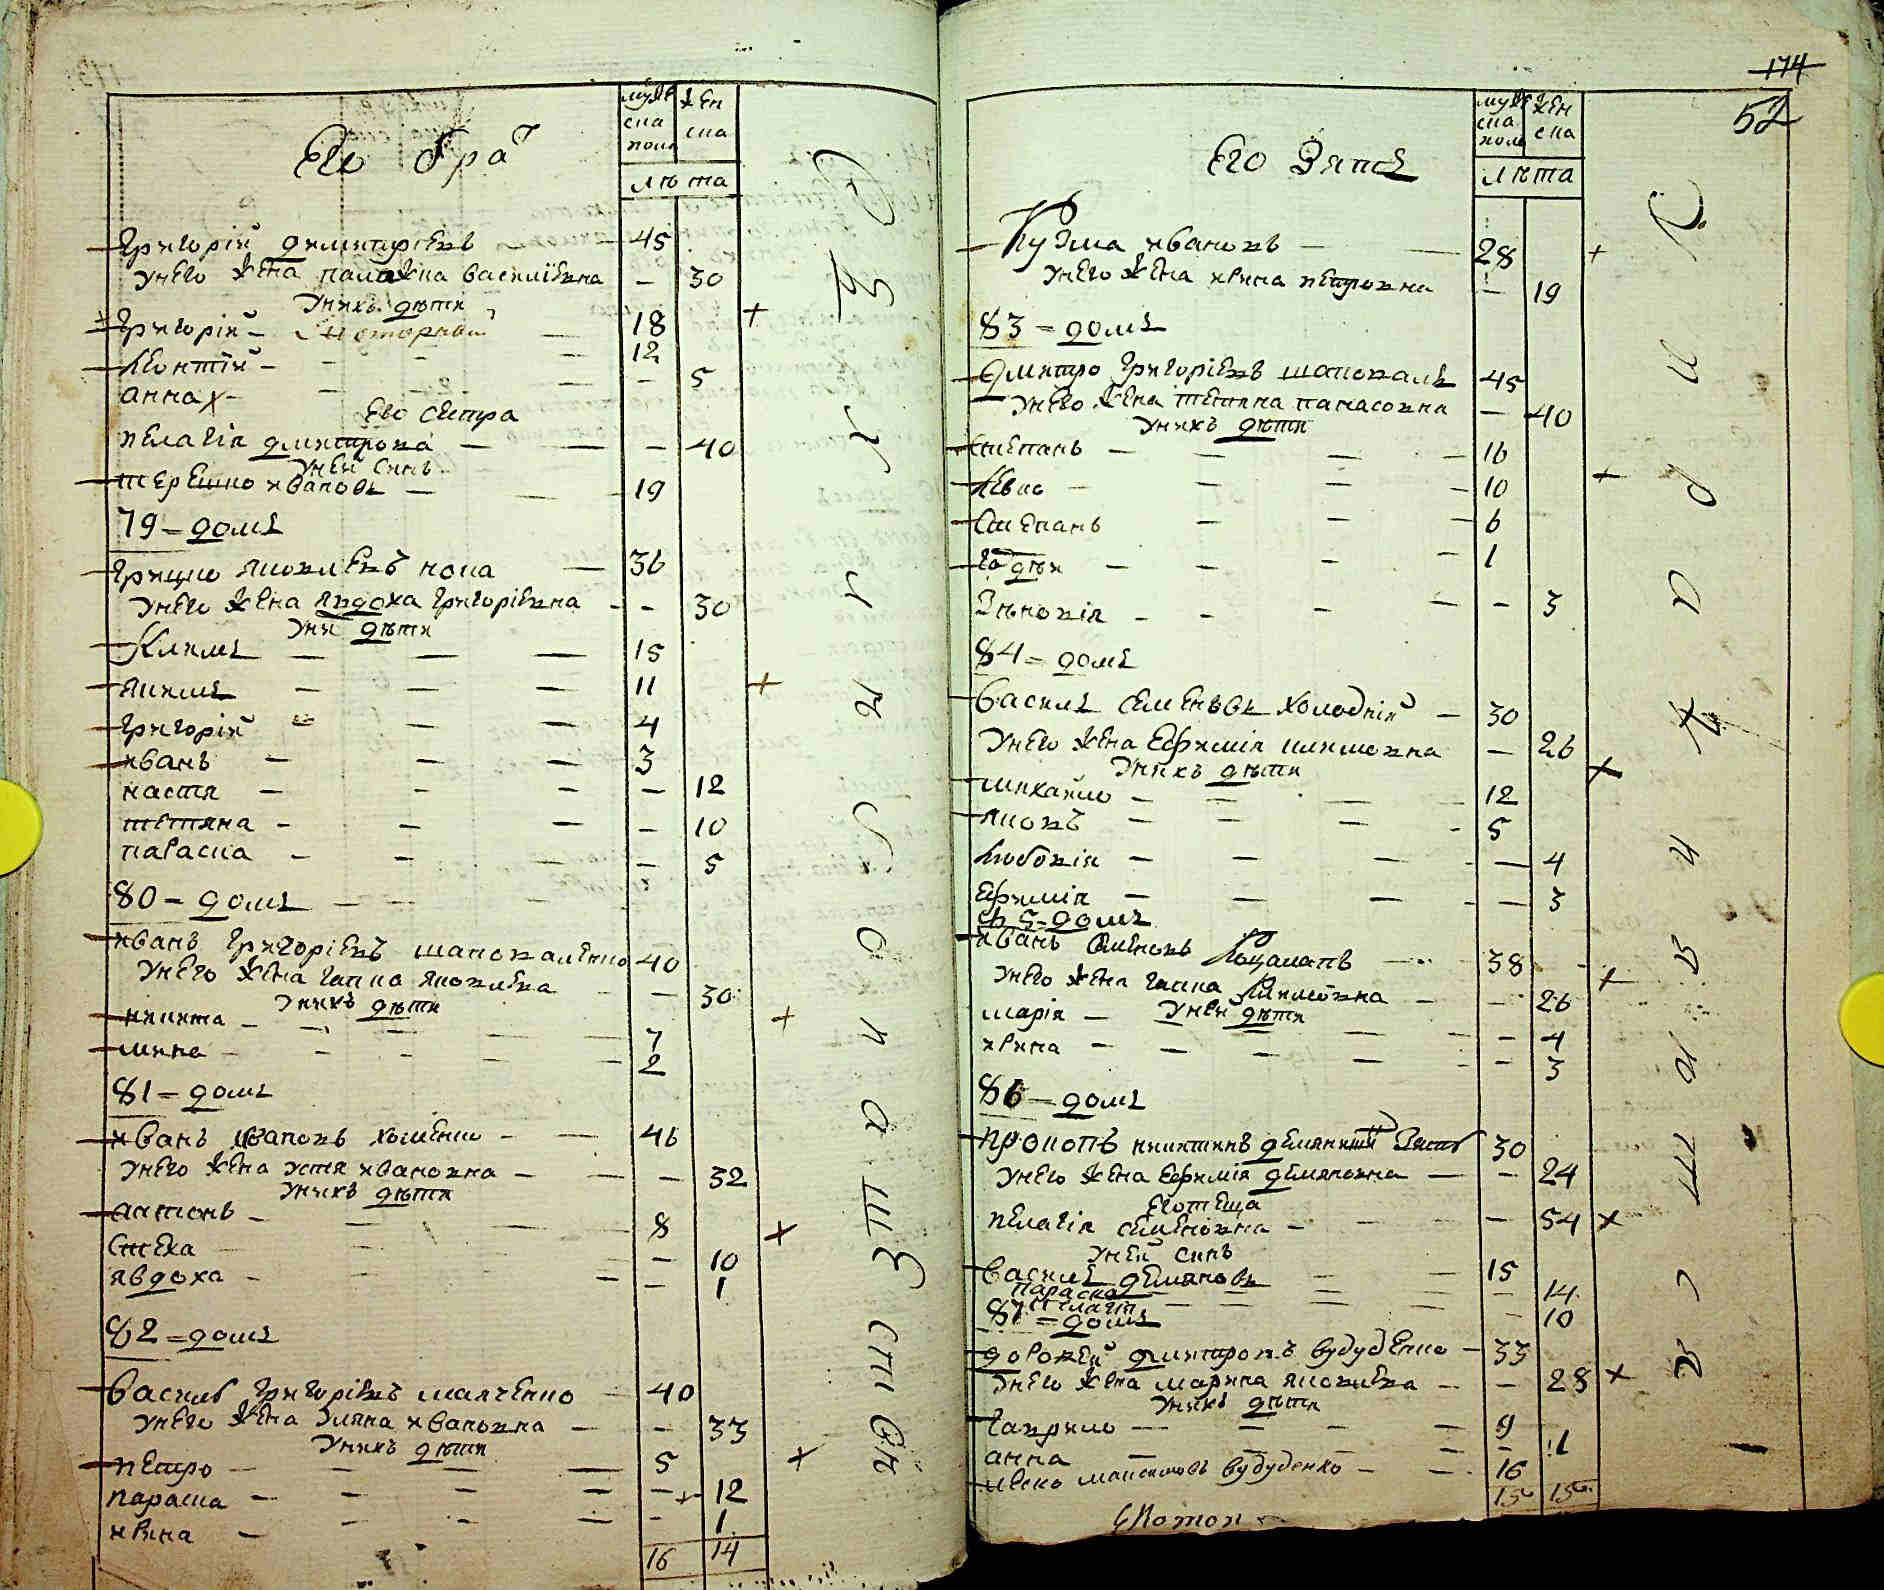 Его Бра т
муж ска пола
жен ска
лѣта
Григорій Димитріевъ 45
унего жена палажка василіевна 30
унихъ дѣти
Григорій 18
Леонтій 12
анна 5
Его сестра
пелагія дмитрова 40
уней синъ
терешко ивановъ 19
79 домъ
Грицко яковлевъ кова 36
унего жена явдоха григоріевна 30
уни дѣти
Климъ 15
якимъ 11
григорій 4
иванъ 3
настя 12
тетяна 10
параска 5
80 домъ
иванъ григоріевъ шаповаленко 40
унего жена гапка яковлевна 30
унихъ дѣти
никита 7
мина 2
81 домъ
иванъ ивановъ хоменко 46
унего жена устя ивановна 32
унихъ дѣти
антонъ 8
стеха 10
явдоха 1
82 домъ
василь григоріевъ малченко 40
унего жена уляна ивановна 33
унихъ дѣти
петро 5
параска 12
ирина 1
16 14
174
52
Его Зять
муж ска пола
жен ска
лѣта
Кузма ивановъ 28
унего жена ирина петровна 19
83 домъ
Дмитро григоріевъ шаповалъ 45
унего жена тетяна панасовна 40
унихъ дѣти
степанъ 16
левко 10
степанъ 6
1
Зѣновія 3
84 домъ
василь семеновъ холодній 30
унего жена ефимія климовна 26
унихъ дѣти
михайло 12
яковъ 5
любовія 4
ефимія 3
85 домъ
иванъ семеновъ 38
унего жена гапка климовна 26
уней дѣти
марія 4
ирина 3
86 домъ
прокопъ никитинъ зять 30
унего жена ефимія демяновна 24
его теща
пелагія семеновна 54
уней синъ
василь демяновъ 15
параска 14
пелагія 10
87 домъ
дорофей дмитровъ вудуденко 33
унего жена марина яковлевна 28
унихъ дѣти
гаврило 9
анна 1
вудуденко 16
15 15